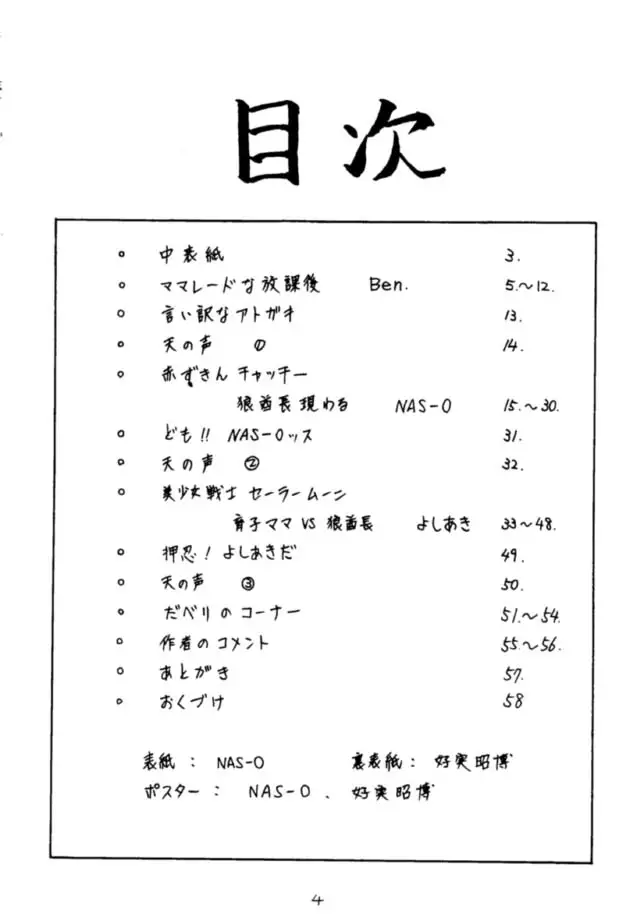 目次
○ 中表紙 3.
○ ママレードな放課後 Ben. 5.〜12.
○ 言い訳なアトガキ 13.
○ 天の声 ① 14.
○ 赤ずきんチャッチー
狼酋長現わる NAS-O 15.〜30.
○ ども!! NAS-Oッス 31.
○ 天の声 ② 32.
○ 美少女戦士セーラームーン
育子ママVS狼酋長 よしあき 33〜48.
○ 押忍!よしあきだ 49.
○ 天の声 ③ 50.
○ だべりのコーナー 51.〜54.
○ 作者のコメント 55.〜56.
○ あとがき 57.
○ おくづけ 58
表紙: NAS-O 裏表紙: 好実昭博
ポスター: NAS-O. 好実昭博
4